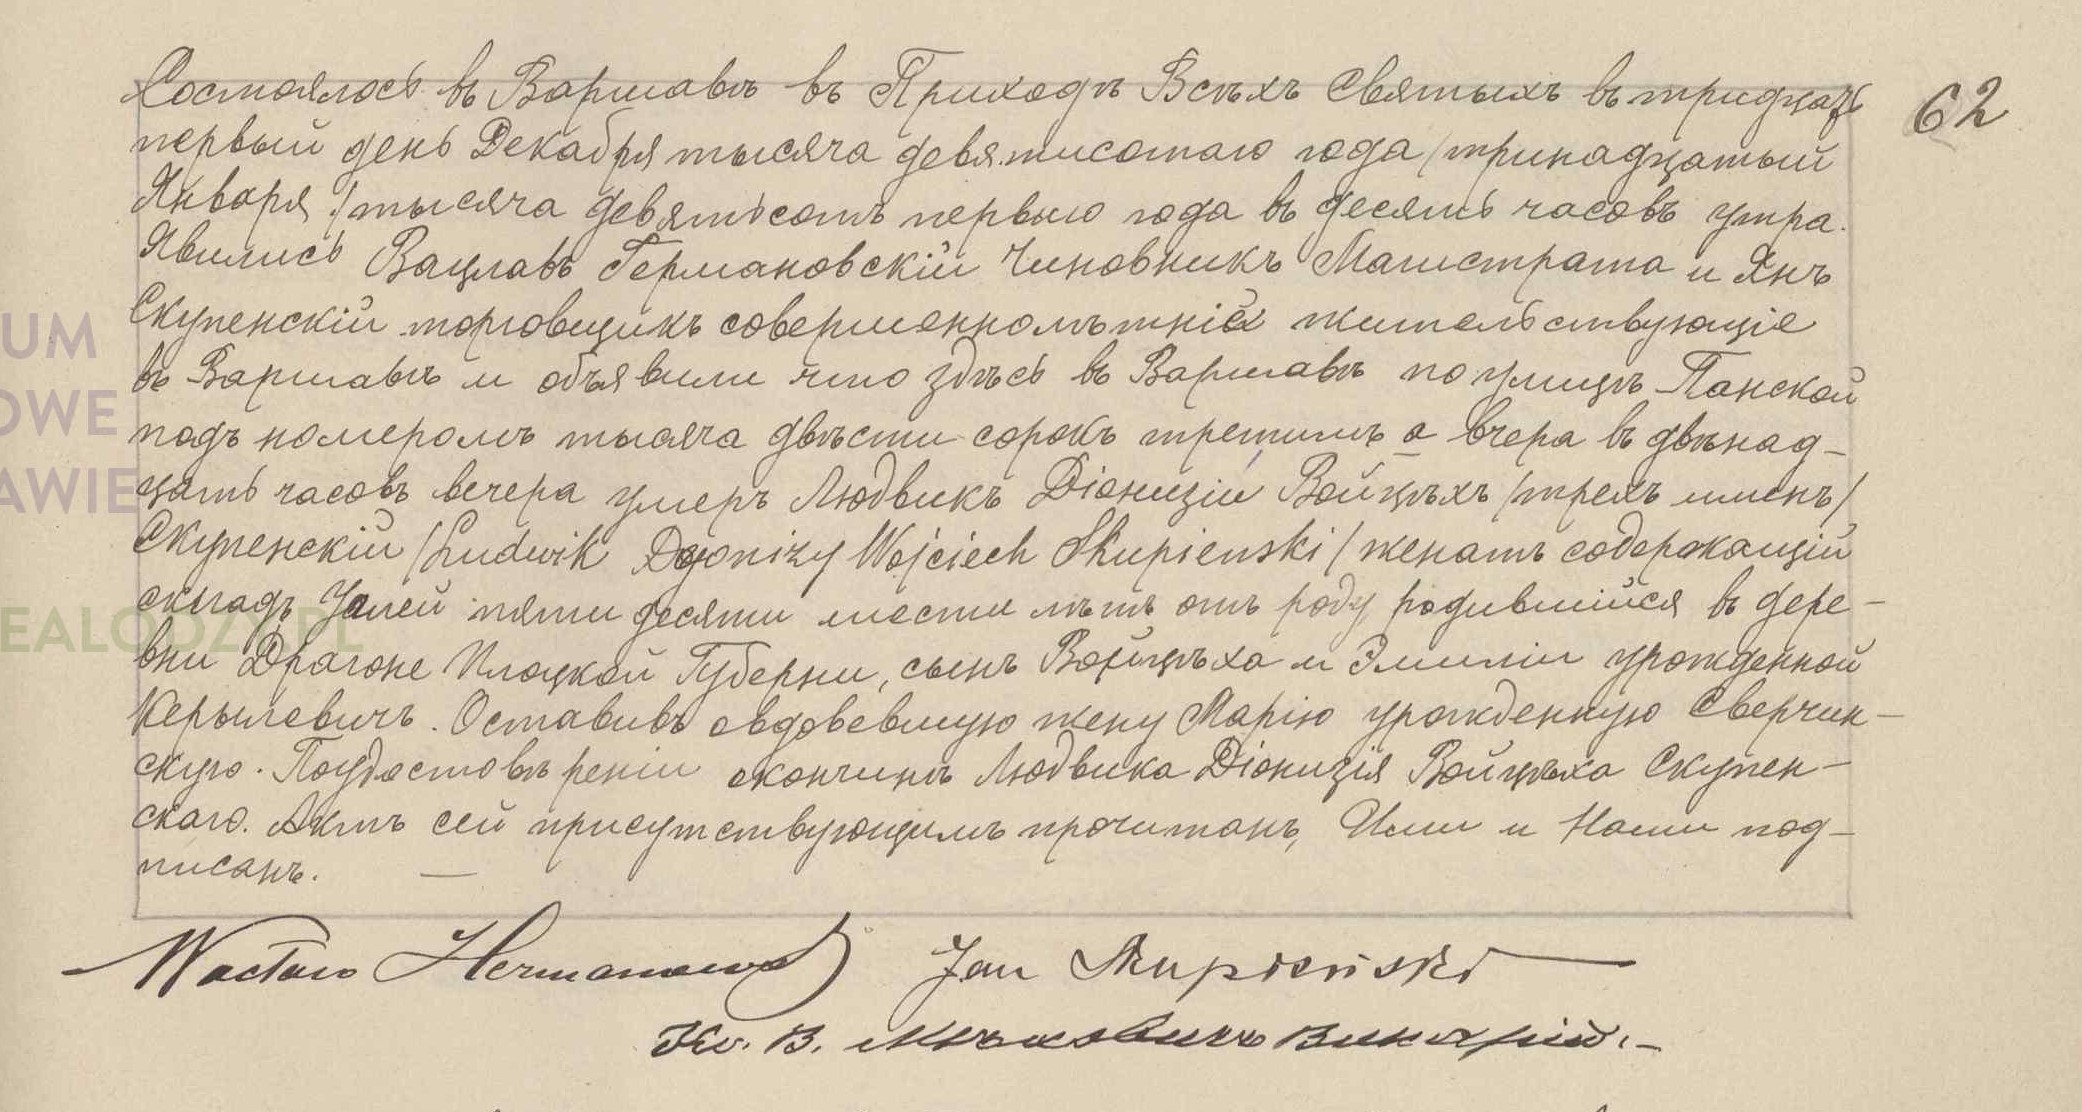 Состоялось въ Варшавѣ въ Приходѣ Всѣхъ Святыхъ въ тридцать 62
первый день Декабря тысяча девятисотаго года /тринадцатый
Января/ тысяча девятьсотъ перваго года въ десять часовъ утра.
Явились Вацлавъ Германовскій Чиновникъ Магистрата и Янъ
Скупенскій торговщикъ совершеннолѣтніе жительствующіе
въ Варшавѣ и объявили что здѣсь въ Варшавѣ по улицѣ Панской
подъ номеромъ тысяча двѣсти сорокъ третимъ а вчера въ двѣнад-
цать часовъ вечера умеръ Людвикъ Діонизій Войцѣхъ /трехъ именъ/
Скупенскій /Ludwik Dyonizy Wojciech Skupienski/ женатъ содержащій
складъ углей пятидесяти шести лѣтъ отъ роду, родившійся въ дере-
вни Драгоне Плоцкой Губерни, сынъ Войцѣха и Эмиліи урожденной
. Оставивъ овдовевшую жену Марію урожденную Сверчин-
скую. По удостовѣреніи окончинѣ Людвика Діонизія Войцѣха Скупен-
скаго. Актъ сей присутствующимъ прочитанъ, Ими и Нами под-
писанъ. —
Wacław Jan Skupieński
Кс. В. Викарій. -
UM
OWE
AWIE
EALODZY.PL